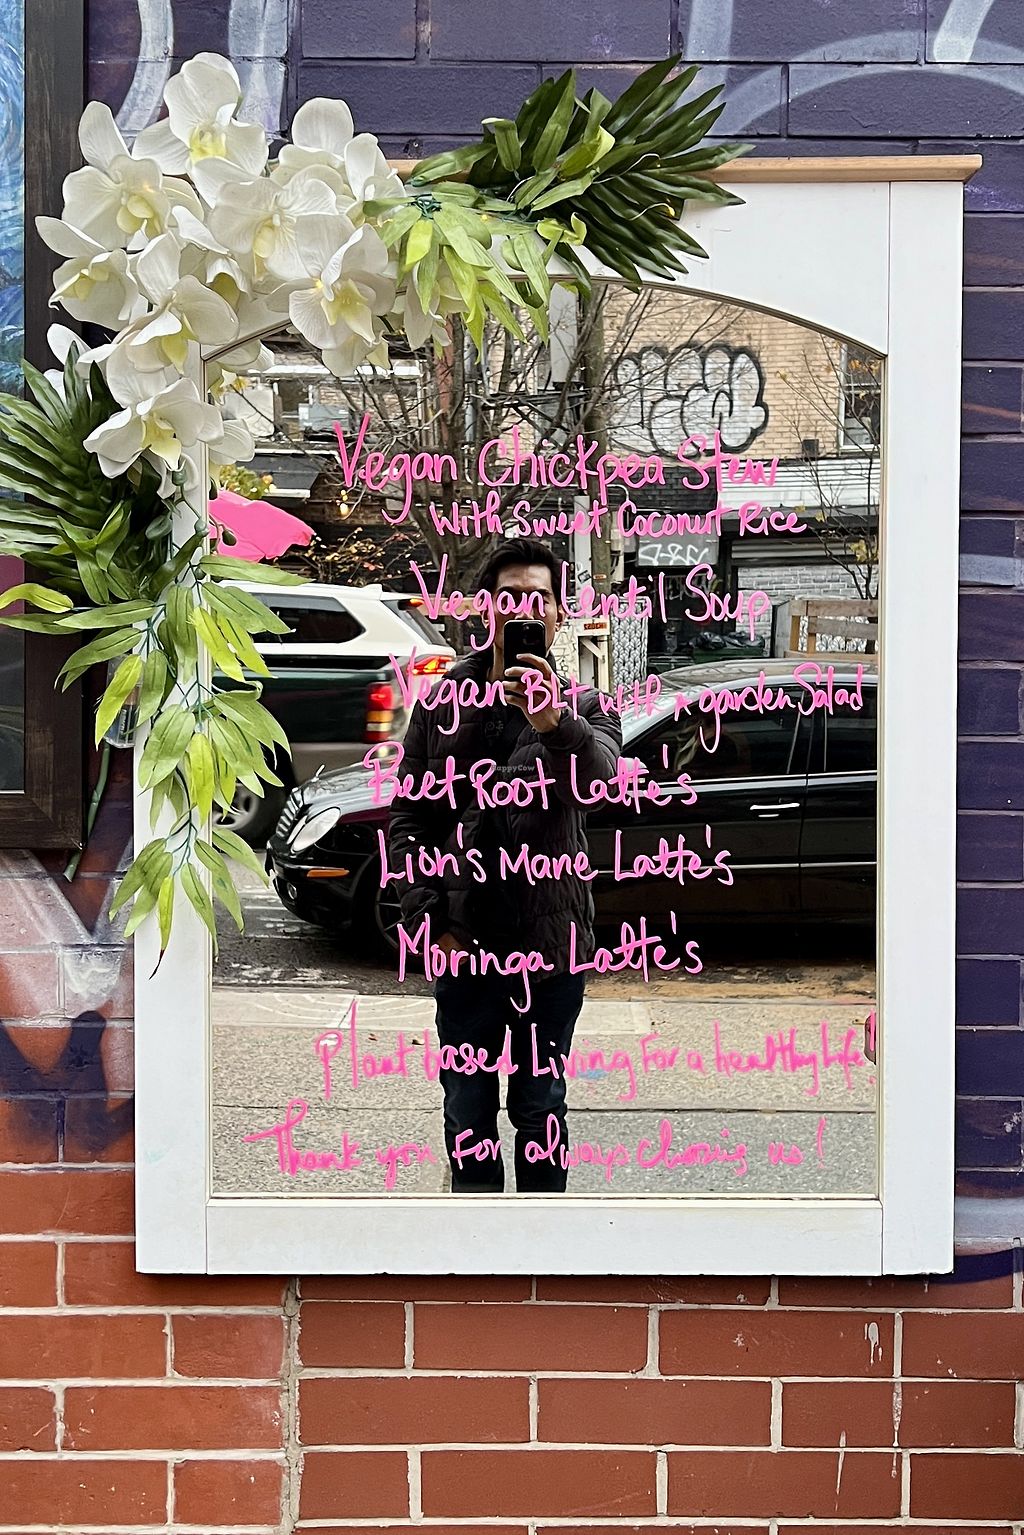 Vegan Chickpea Stew
With Sweet Coconut Rice
Vegan Lentil Soup
Vegan BLT with A garden Salad
Beet Root Latte's
Lion's Mane Latte's
Moringa Latte's
Plant based Living For a healthy Life!
Thank you For always Chosing us!
HappyCow